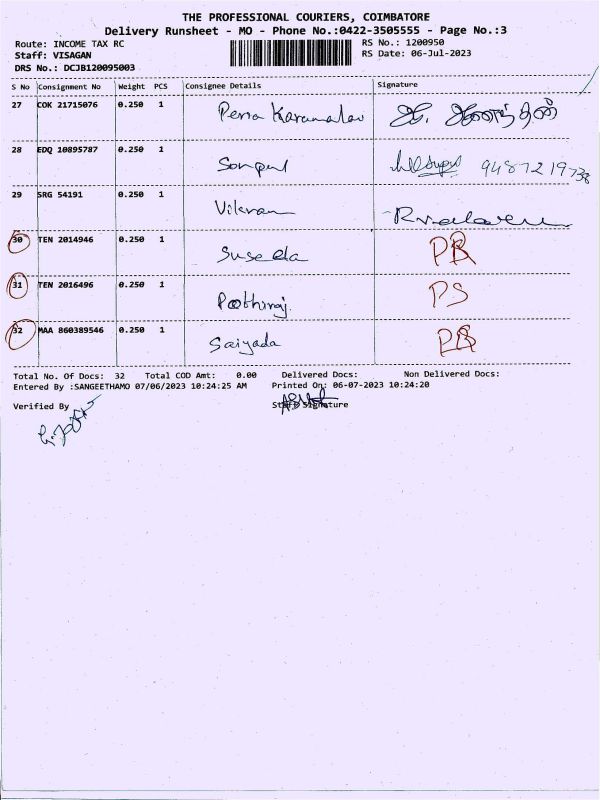 THE PROFESSIONAL COURIERS, COIMBATORE
Delivery Runsheet - MO - Phone No.:0422-3505555 - Page No.:3
Route: INCOME TAX RC
RS No.: 1200950
Staff: VISAGAN
RS Date: 06-Jul-2023
DRS No.: DCJB120095003
S No Consignment No Weight PCS Consignee Details Signature
27 COK 21715076 0.250 1
28 EDQ 10895787 0.250 1 9487219738
29 SRG 54191 0.250 1 Vikram
30 TEN 2014946 0.250 1 Suseela
31 TEN 2016496 0.250 1 Poothiraj. PS
32 MAA 860389546 0.250 1 Saiyada
Total No. Of Docs: 32 Total COD Amt: 0.00 Delivered Docs: Non Delivered Docs:
Entered By :SANGEETHAMO 07/06/2023 10:24:25 AM Printed On: 06-07-2023 10:24:20
Verified By Staff Signature